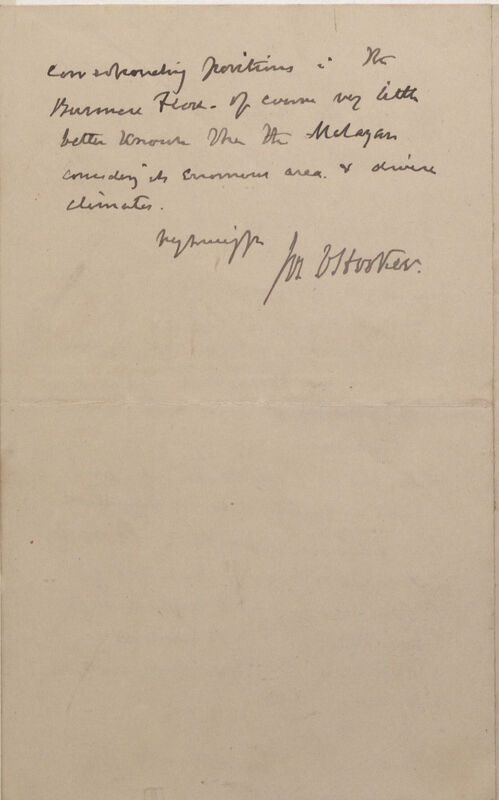 corresponding positions in the
Burmese Flora - of course very little
better known than the Malayan
considering its enormous area & diverse
climates.
Jos D Hooker.